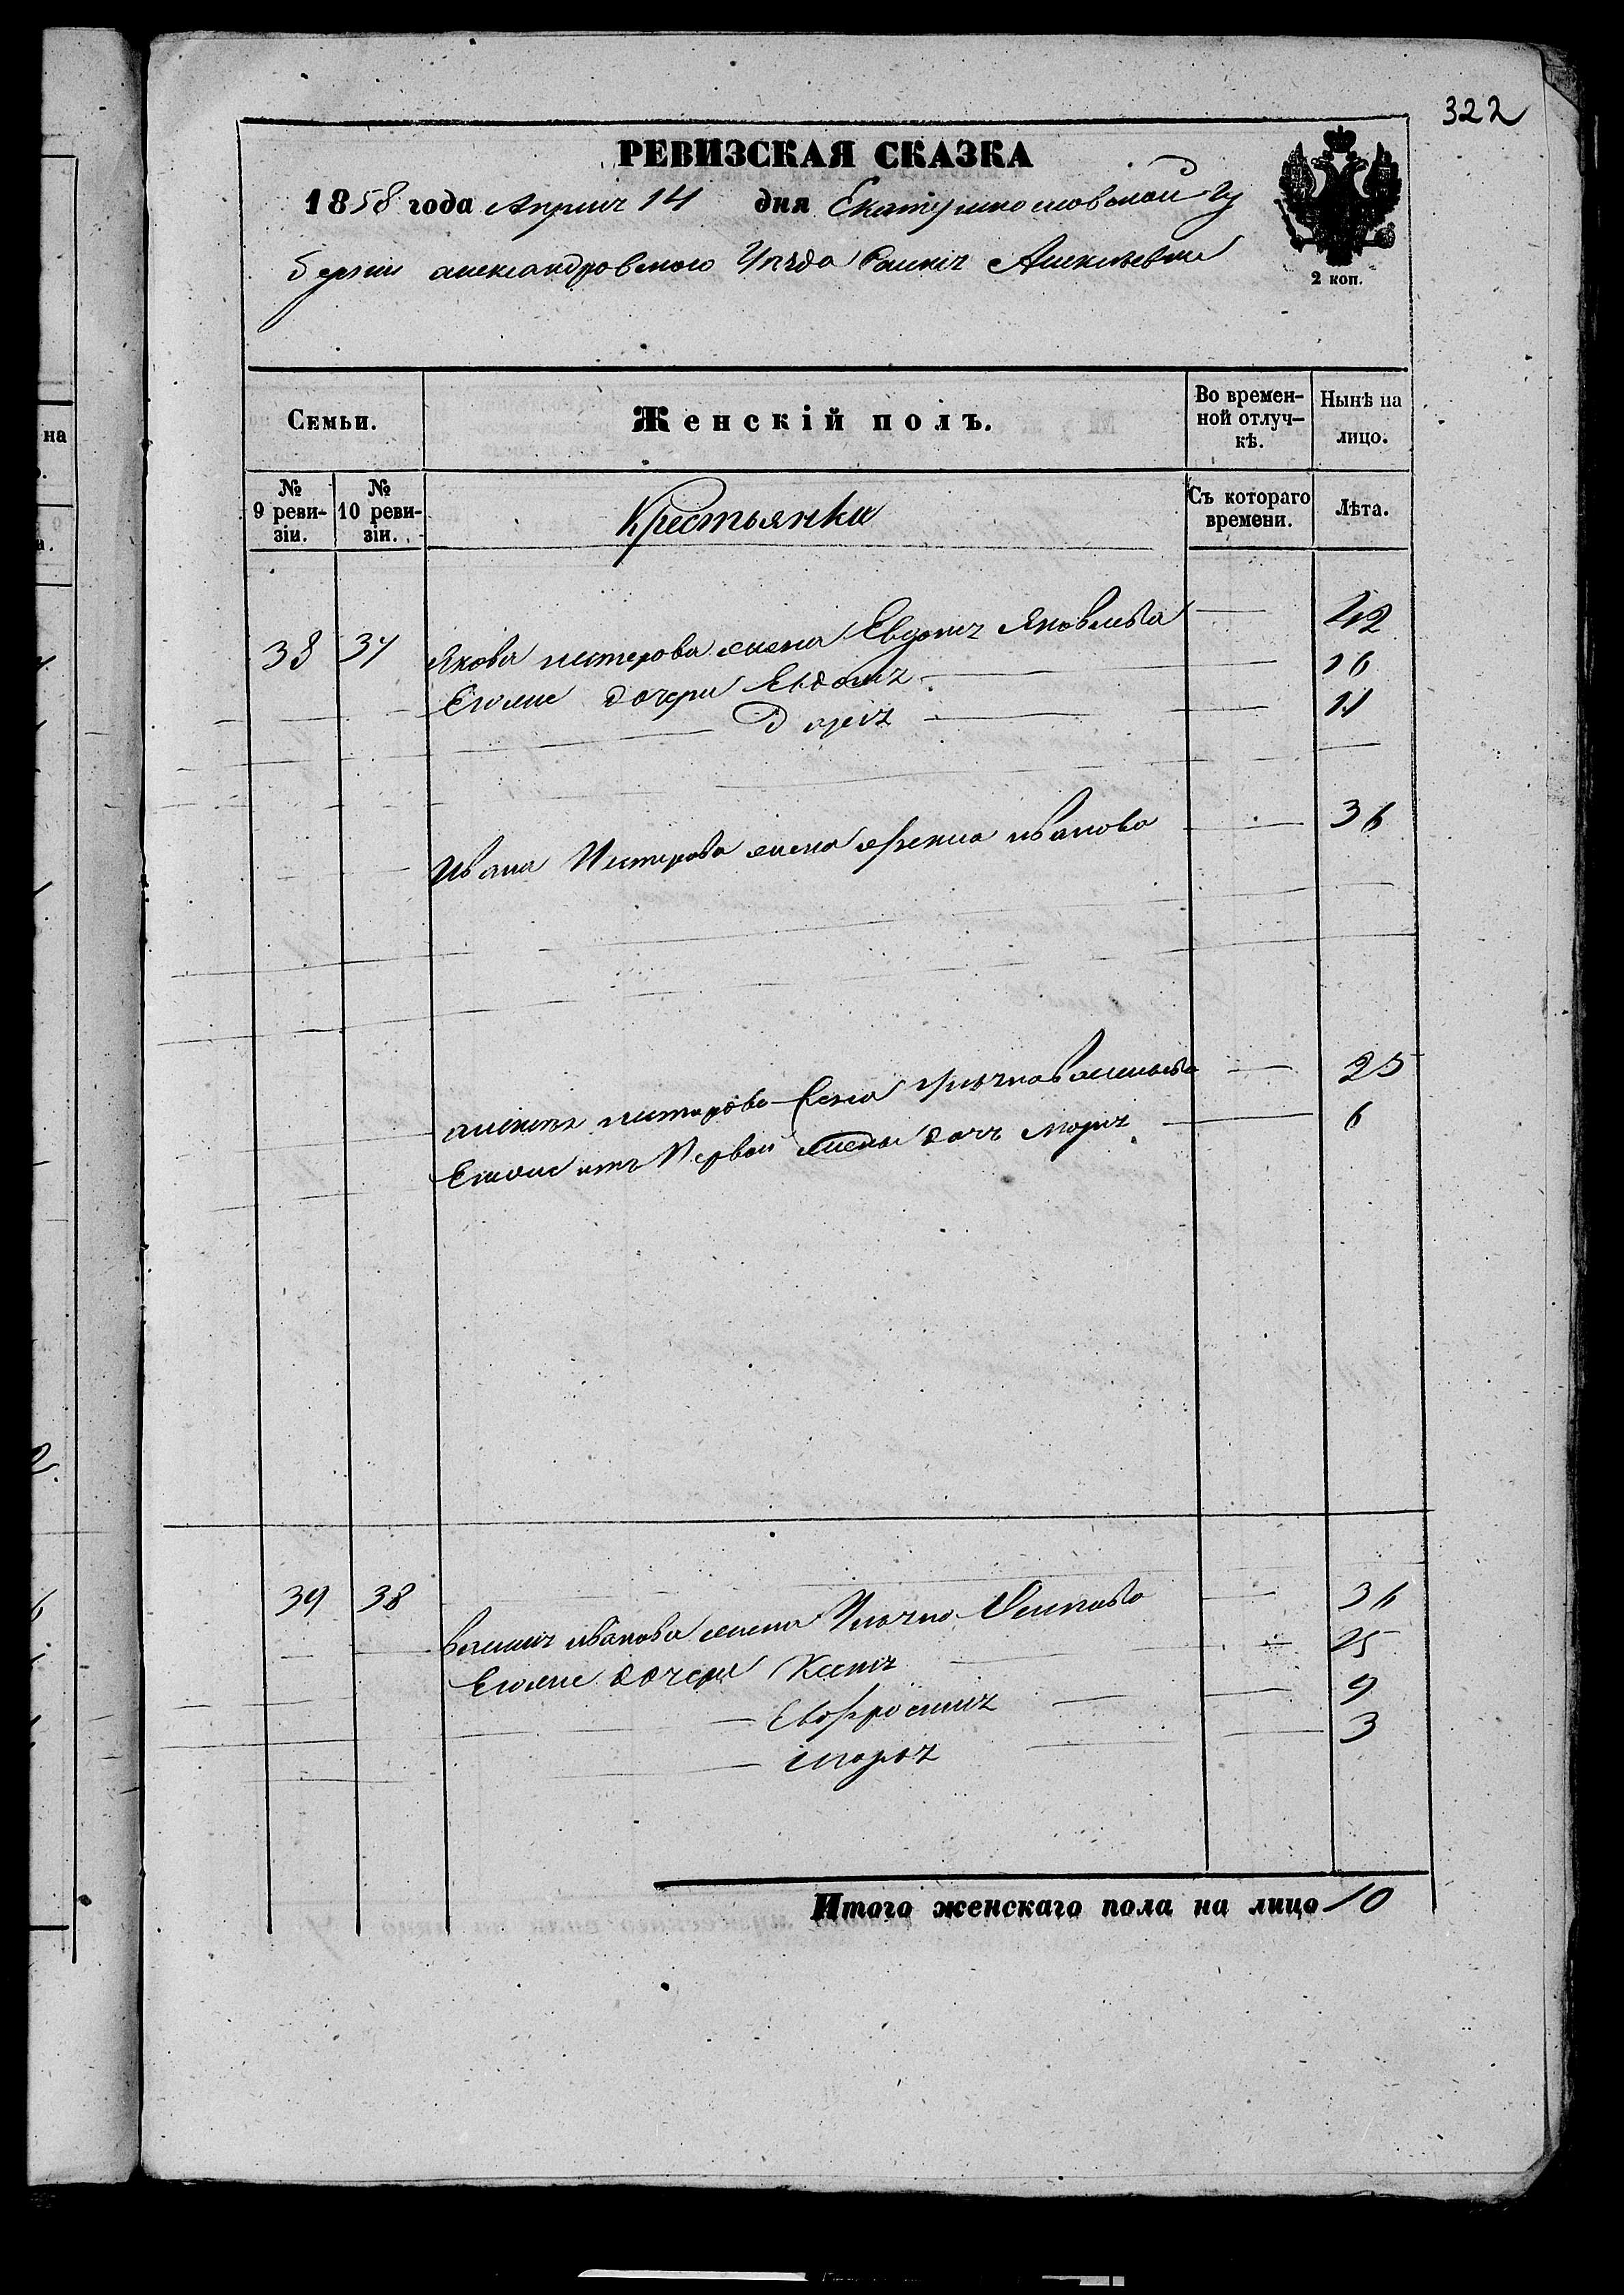 322
РЕВИЗСКАЯ СКАЗКА
1858 года Априля 14 дня Екатеринославской Гу
бернии александровского Уезда Алексѣевки
2 коп.
Семьи.
Женскій полъ.
Во времен-
ной отлуч-
кѣ.
Нынѣ на
лицо.
№
9 реви-
зіи.
№
10 реви-
зіи.
Крестьянки
Съ котораго
времени.
Лѣта.
38 37 Якова нестерова жена Евдокия Яковлева 42
Еголие дочери Евдокия 16
Дария 11
Ивана Нестерова жена ивanова 36
алексея нестерова жена васильева 25
Еголие отъ Первой жены дочь Мария 6
39 38 василия иванова жена Улияна Осипова 36
Еголие дочери Ксения 25
Евфросиния 9
мария 3
Итого женскаго пола на лицо 10
на